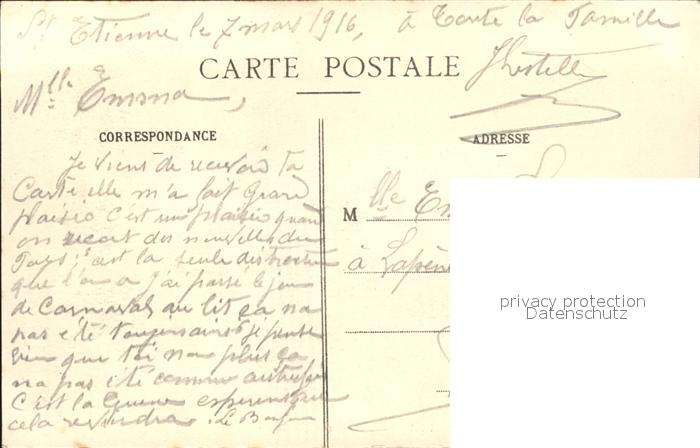 St Etienne le 7 mars 1916, à toute la Famille
CARTE POSTALE
Mlle Emma,
CORRESPONDANCE
ADRESSE
Je viens de recevoir ta
Carte elle m'a fait Grand
plaisir c'est un plaisir quand
on reçoit des nouvelles du
Pays c'est la seule distraction
que l'on a j'ai passé le jour
de Carnaval au lit ça na
pas été toujours ainsi je pense
bien que toi non plus ça
na pas été comme autrefois
C'est la Guerre esperons que
cela reviendra. Le Bonjour
Mlle Em
à Lapén
privacy protection
Datenschutz